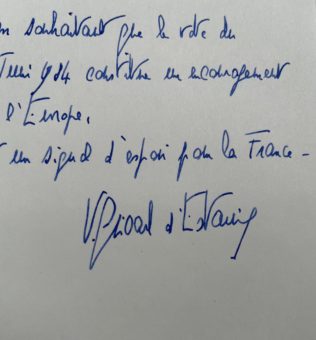 en souhaitant que le vote du
Juin 1984 constitue un encouragement
l'Europe,
un signal d'espoir pour la France -
V. Giscard d'Estaing